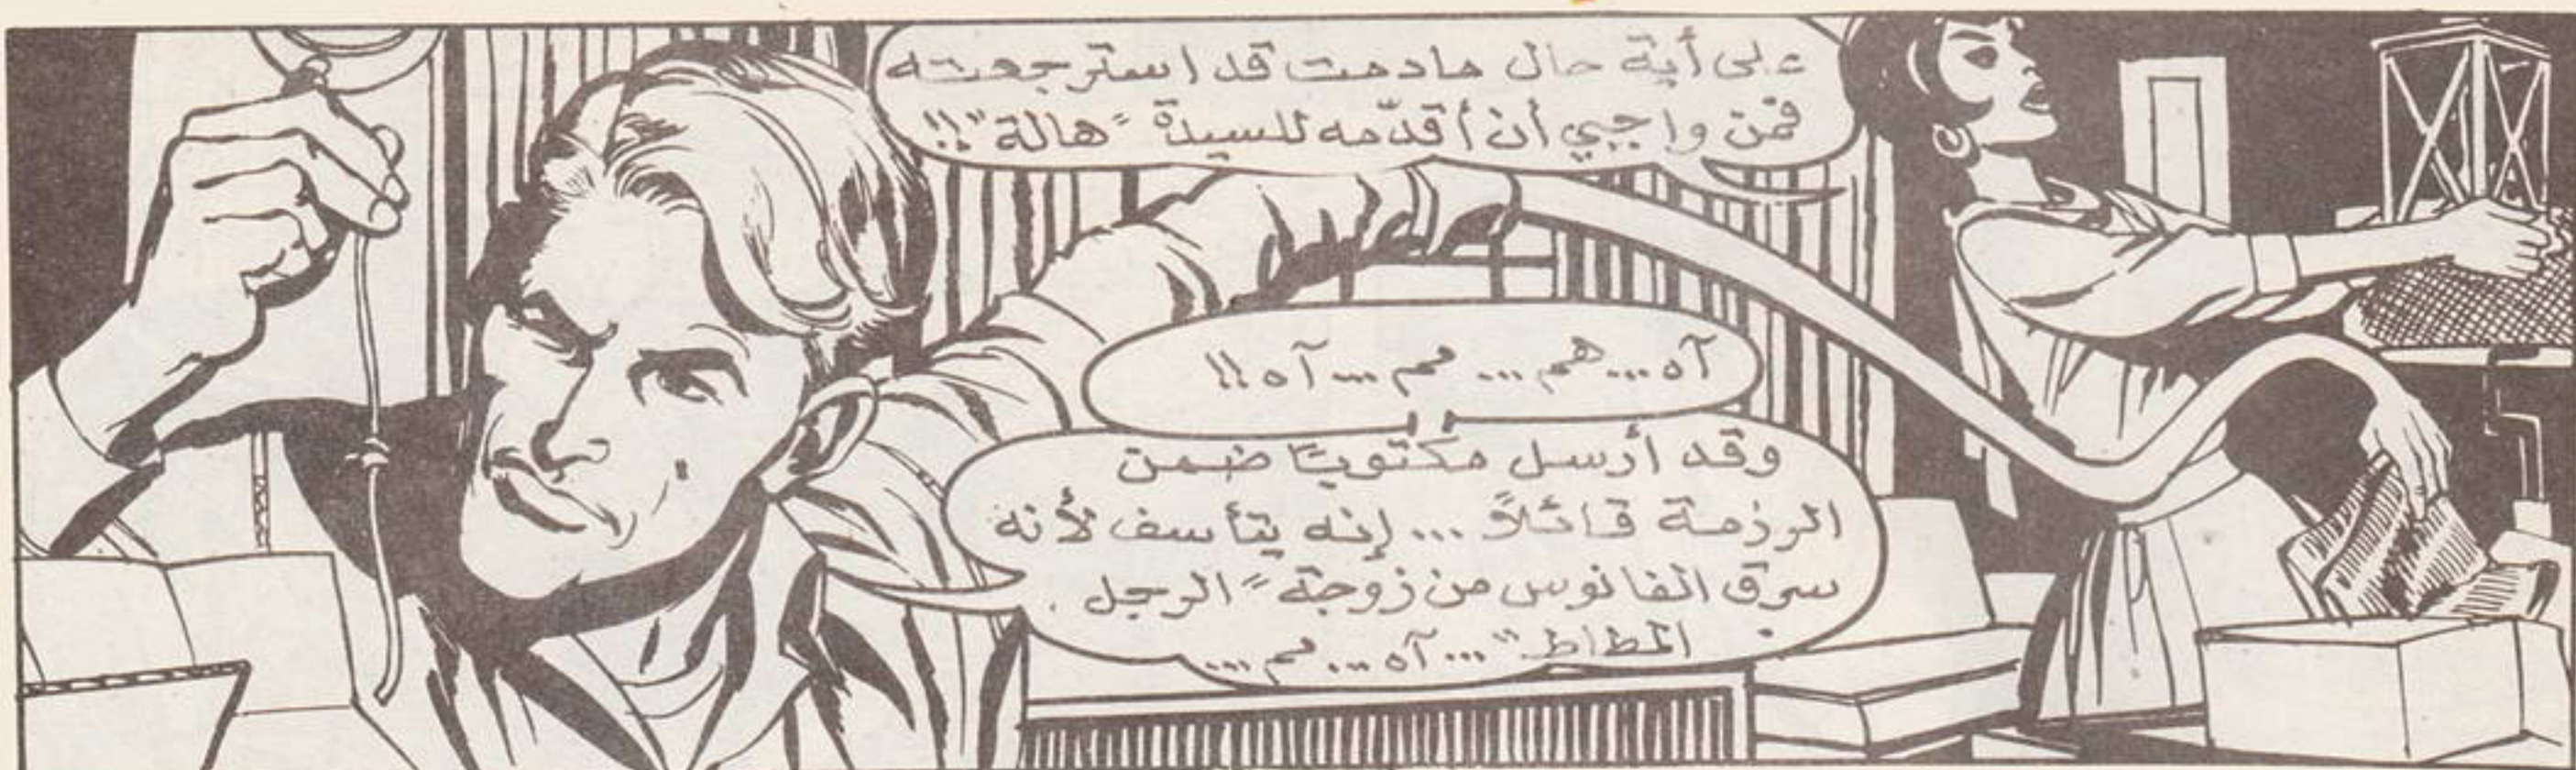 على أية حال مادمت قد استرجعته
فمن واجبي أن أقدّمه للسيدة "هالة"!!
آه... هم... مم... آه!!
وقد أرسل مكتوبًا ضمن
الرزمة قائلاً... إنه يتأسف لأنه
سرق الفانوس من زوجة "الرجل
المطاط"... آه... مم...